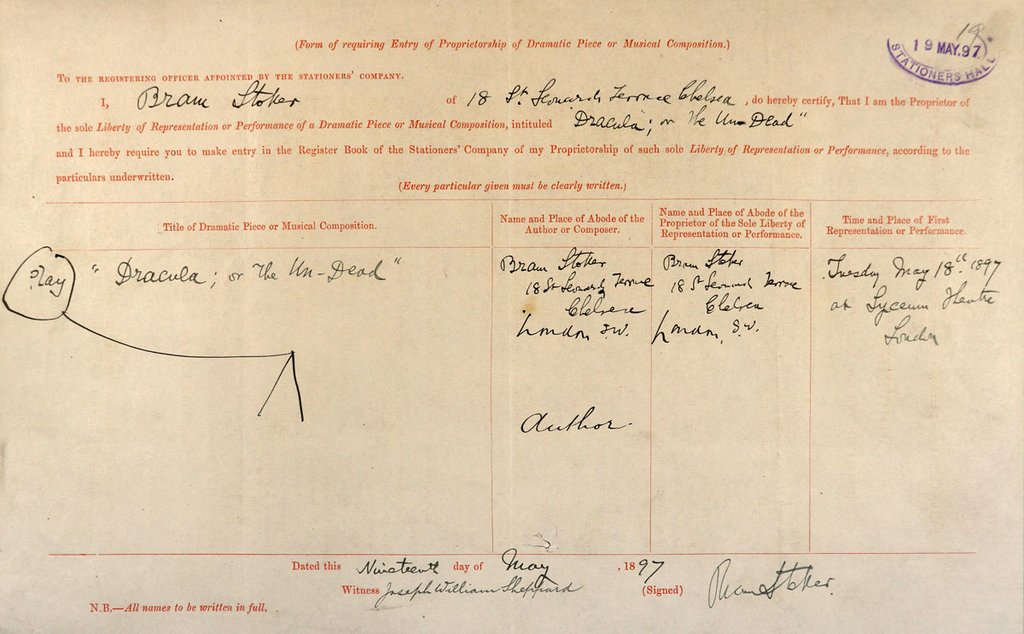 (Form of requiring Entry of Proprietorship of Dramatic Piece or Musical Composition.)
19
19 MAY.97
STATIONERS HALL
TO THE REGISTERING OFFICER APPOINTED BY THE STATIONERS' COMPANY.
I, Bram Stoker of 18 St Leonards Terrace Chelsea, do hereby certify, That I am the Proprietor of
the sole Liberty of Representation or Performance of a Dramatic Piece or Musical Composition, intituled "Dracula; or The Un-Dead"
and I hereby require you to make entry in the Register Book of the Stationers' Company of my Proprietorship of such sole Liberty of Representation or Performance, according to the
particulars underwritten.
(Every particular given must be clearly written.)
Title of Dramatic Piece or Musical Composition.
Name and Place of Abode of the
Author or Composer.
Name and Place of Abode of the
Proprietor of the Sole Liberty of
Representation or Performance.
Time and Place of First
Representation or Performance.
Play
"Dracula; or The Un-Dead"
Bram Stoker
18 St Leonards Terrace
Chelsea
London, S.W.
Author
Bram Stoker
18 St Leonards Terrace
Chelsea
London, S.W.
Tuesday May 18th 1897
at Lyceum Theatre
London
Dated this Nineteenth day of May, 1897
Witness Joseph William Sheppard (Signed) Bram Stoker
N.B.—All names to be written in full.